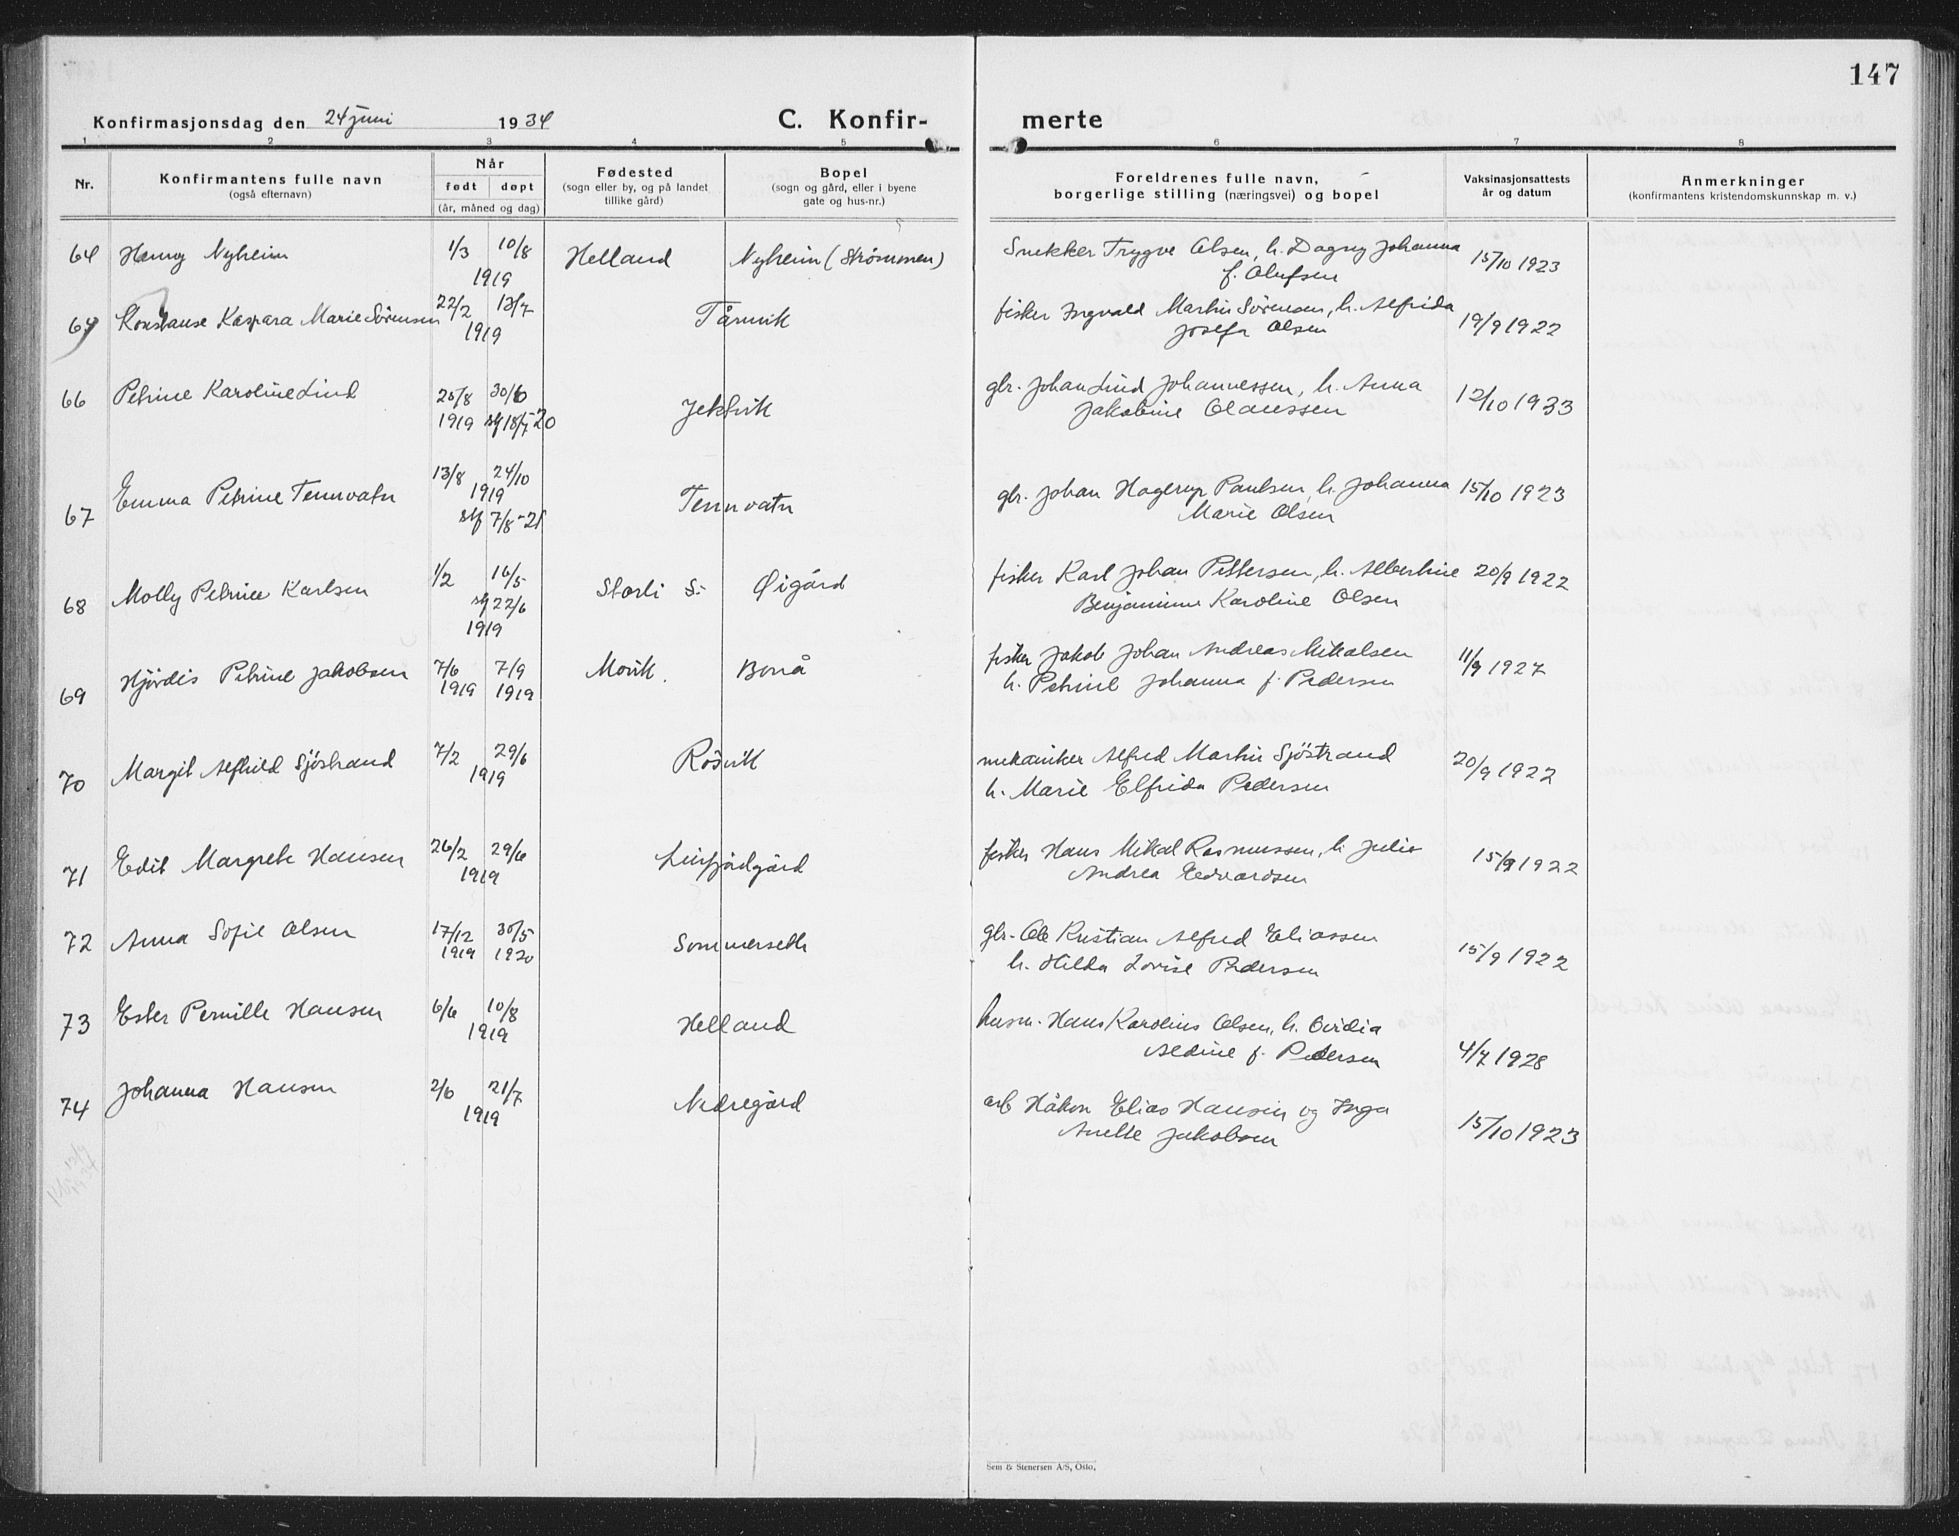 147
Konfirmasjonsdag den 24 juni 1934 C. Konfir- merte
1 2 3 4 5 6 7 8
Nr. Konfirmantens fulle navn (også efternavn) Når født døpt (år, måned og dag) Fødested (sogn eller by, og på landet tillike gård) Bopel (sogn og gård, eller i byene gate og hus-nr.) Foreldrenes fulle navn, borgerlige stilling (næringsvei) og bopel Vaksinasjonsattests år og datum Anmerkninger (konfirmantens kristendomskunnskap m. v.)
64 Henry Nyheim 1/3 10/8 1919 Helland Nyheim (Strømmen) Snekker Trygve Olsen, h. Dagny Johanna f. Olufsen 15/10 1923
Konstanse Kaspara Marie Sørensen 22/2 13/7 1919 Tårnvik fisker Ingvald Martin Sørensen, h. Alfrida Josefa Olsen 19/9 1922
66 Petrine Karoline Lind 25/8 30/6 1919 stf 18/7-20 Jektvik gbr. Johan Lind Johannessen, h. Anna Jakobine Olaussen 12/10 1933
67 Emma Petrine Tennvatn 13/8 24/10 1919 stf 7/8-21 Tennvatn gbr. Johan Hagerup Paulsen, h. Johanna Marie Olsen 15/10 1923
68 Molly Petrine Karlsen 1/2 16/5 stf 22/6 1919 Storli S. Øigård fisker Karl Johan Pettersen, h. Albertine Benjaminne Karoline Olsen 20/9 1922
69 Hjördis Petrine Jakobsen 7/6 1919 7/9 1919 Movik. Bonå fisker Jakob Johan Andreas Mikalsen h. Petrine Johanna f. Pedersen 11/9 1927
70 Margit Alfhild Sjöstrand 7/2 29/6 1919 Rösvik mekaniker Alfred Martin Sjöstrand h. Marie Elfrida Pedersen 20/9 1922
71 Edit Margrete Hansen 26/2 29/6 1919 Leirfjordgård fisker Hans Mikal Rasmussen, h. Julie Andrea Edvardsen 15/9 1922
72 Anna Sofie Olsen 17/12 1919 30/5 1920 Sommerseth gbr. Ole Kristian Alfred Eliassen h. Hilda Lovise Pedersen 15/9 1922
73 Ester Pernille Hansen 6/6 10/8 1919 Helland husm. Hans Karolius Olsen, h. Ovidia Aldine f. Pedersen 4/7 1928
74 Johanna Hansen 2/6 21/7 1919 Nedregård arb Håkon Elias Hansen og Inga Anette Jakobsen 15/10 1923
Sem & Stenersen A/S, Oslo.